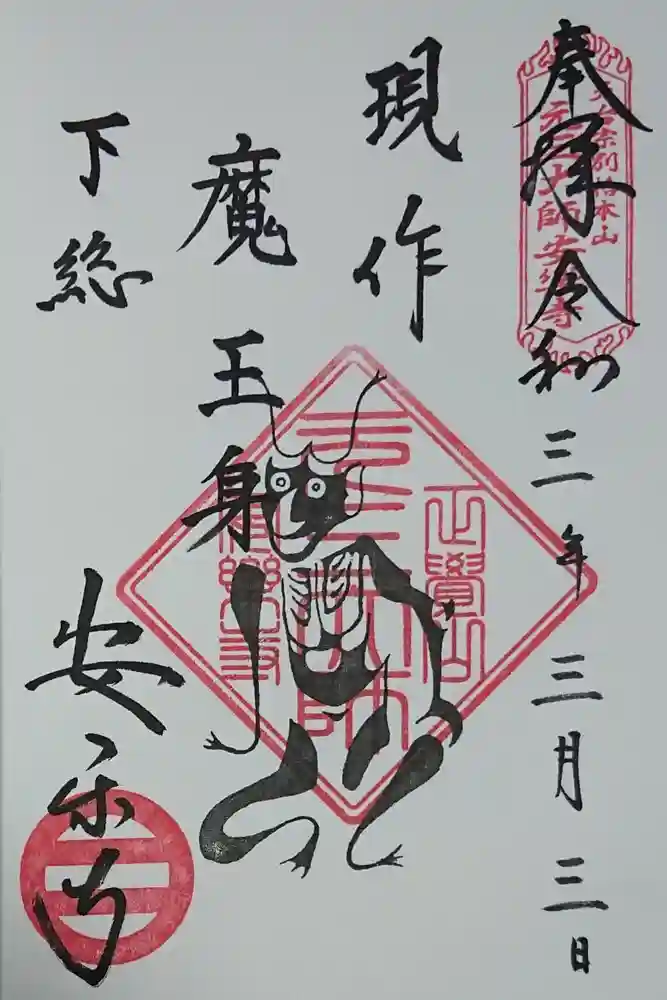 奉拝 令和三年三月三日
天台宗別格本山
元三大師安樂寺
現作
魔王身
正覺山
元三大師
下総
安楽寺